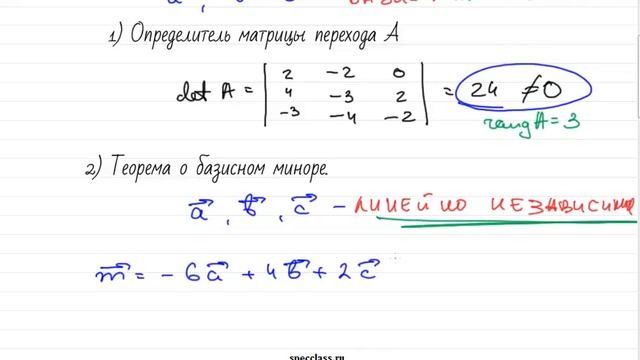 1) Определитель матрицы перехода A
det A = | 2 -2 0 | = 24 ≠0
| 4 -3 2 |
| -3 -4 -2 |
rang A = 3
2) Теорема о базисном миноре.
a⃗ , b⃗ , c⃗ – ЛИНЕЙНО НЕЗАВИСИМ
m⃗ = - 6a⃗ + 4b⃗ + 2c⃗
specclass.ru